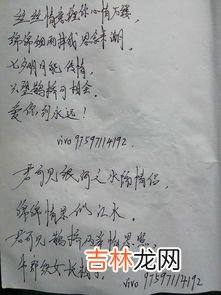 丝丝情意种你心情万缕
绵绵细雨拌我思念来潮。
七夕明月能传情。
只望鹊桥可相会。
爱你到永远！
vivo 97597114192
君可见银河之水隔情侣
绵绵情景似江水。
君可见鹊桥两岸相思
牛郎织女长相
vivo 97597114192
吉林龙网